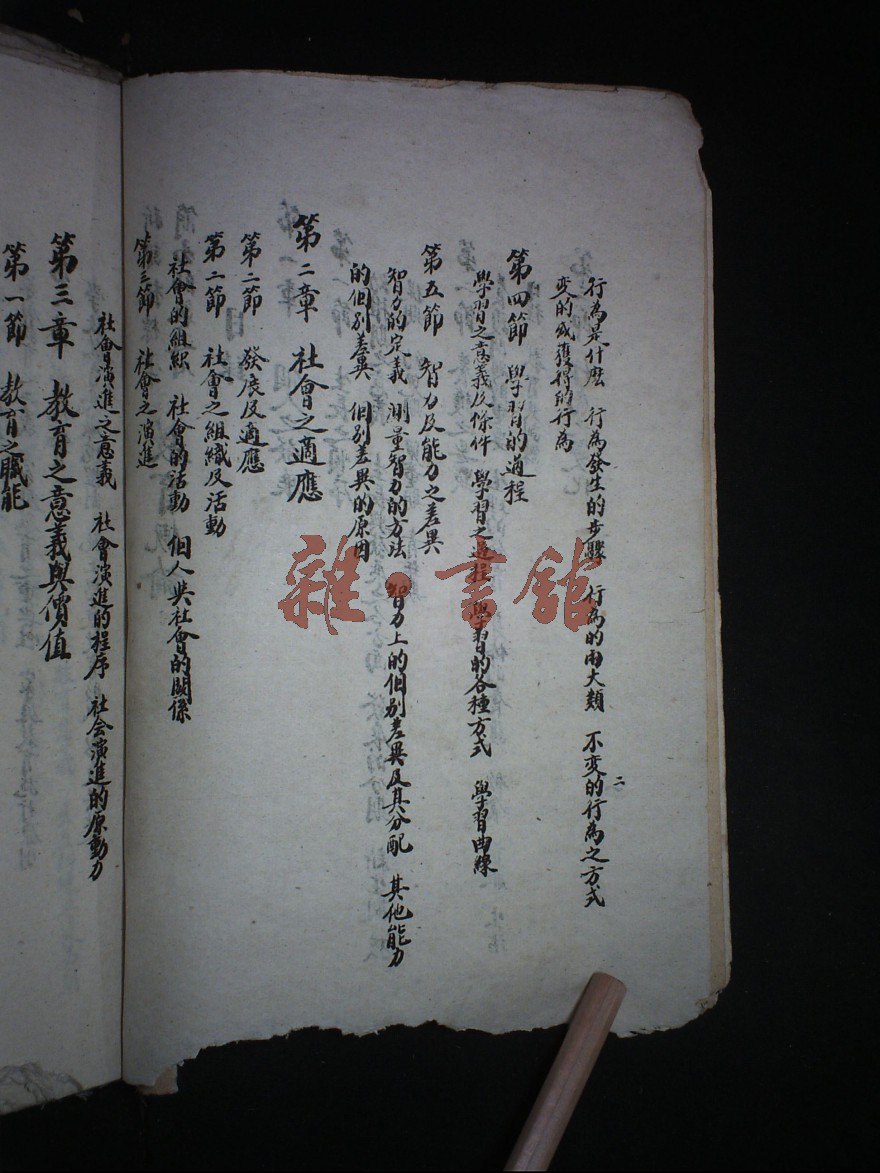 行為是什麽　行為發生的步驟　行為的兩大類　不變的行為之方式
變的或獲得的行為
第四節　學習的過程
學習之意義及條件　學習之過程　學習的各種方式　學習曲線
第五節　智力及能力之差異
智力的定義　測量智力的方法　智力上的個別差異及其分配　其他能力
的個別差異　個別差異的原因
第二章　社會之適應
第二節　發展及適應
第二節　社會之組織及活動
社會的組織　社會的活動　個人與社會的關係
第三節　社會之演進
社會演進之意義　社會演進的程序　社会演進的原動力
第三章　教育之意義與價值
第一節　教育之職能
二
雜·書館